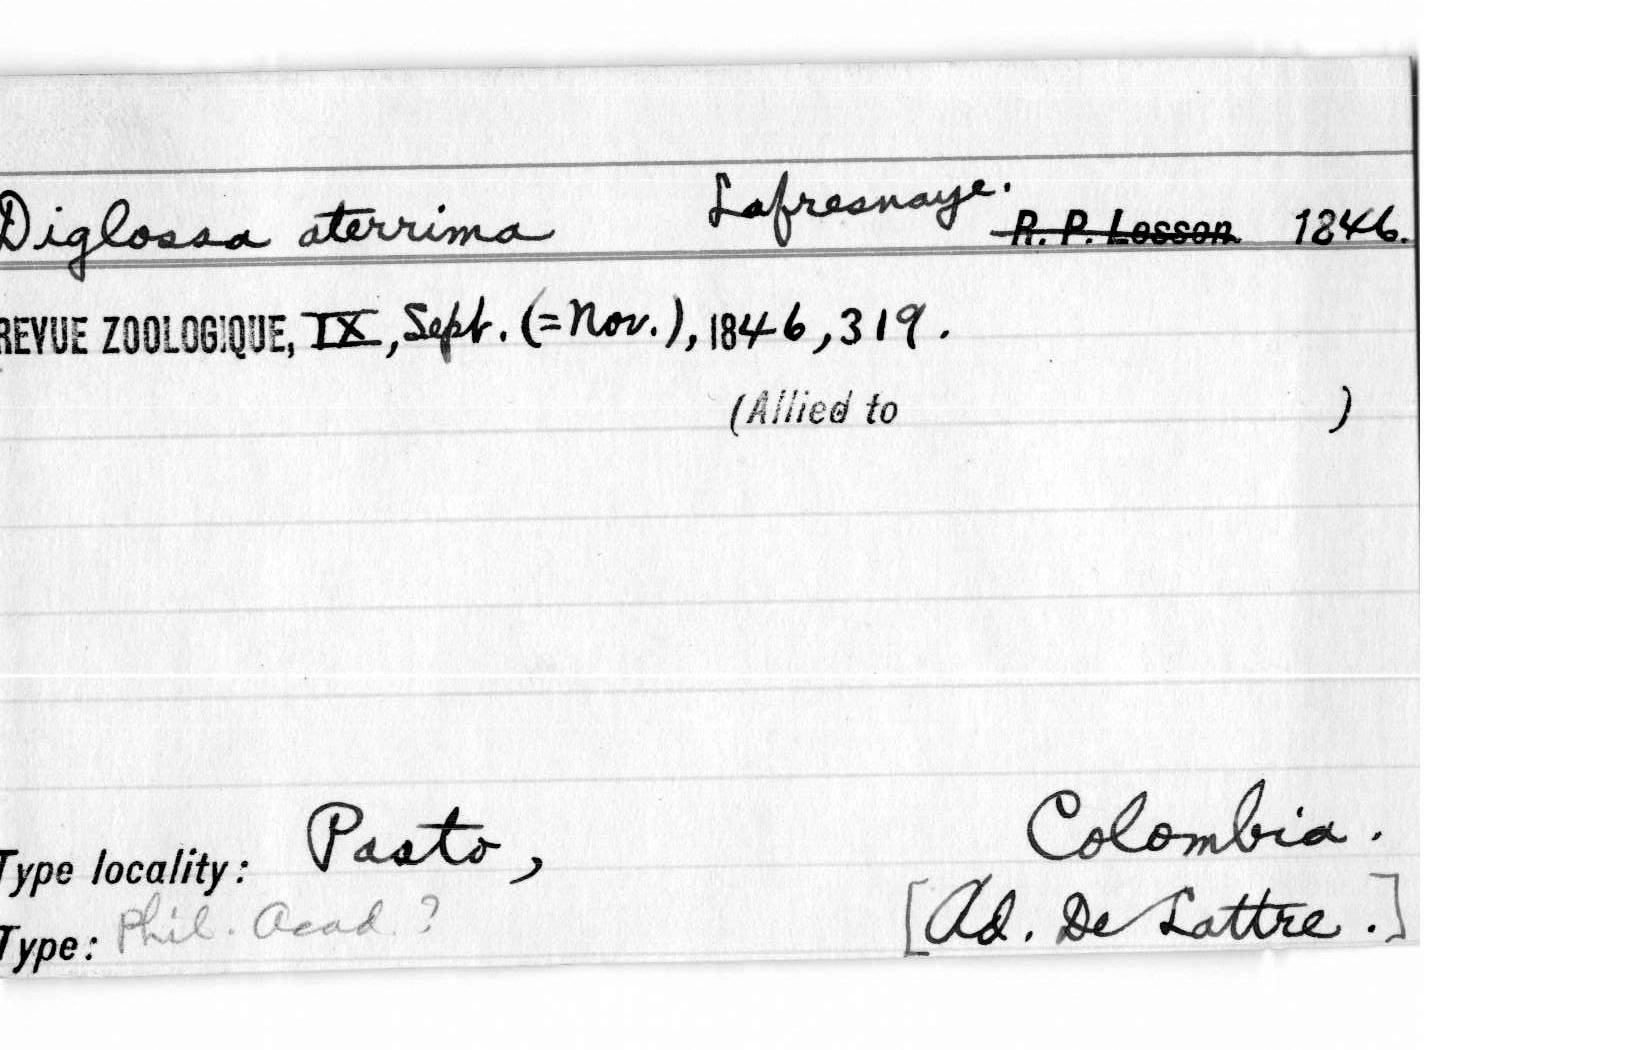 Diglossa aterrima Lafresnaye. R. P. Lesson 1846.
REVUE ZOOLOGIQUE, IX, Sept. (=Nov.), 1846, 319.
(Allied to )
Type locality: Pasto, Colombia.
Type: Phil. Acad. ? [Ad. De Lattre.]